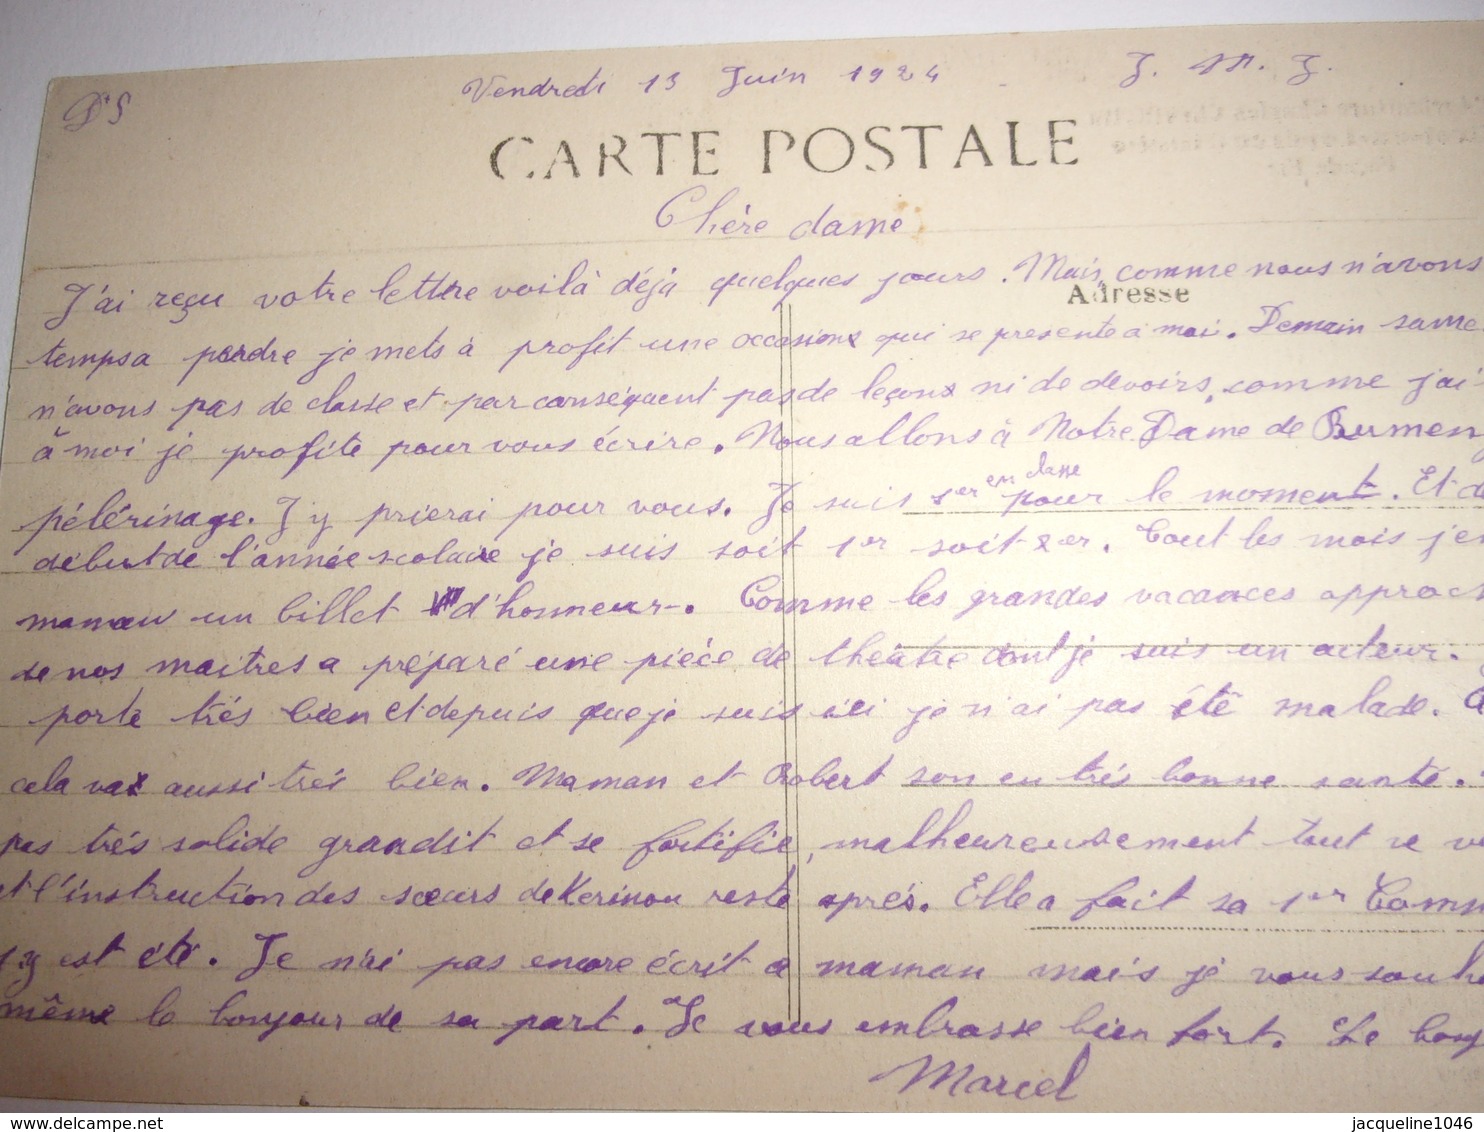 Vendredi 13 Juin 1924 J. M. J.
D S
CARTE POSTALE
Chère dame
J'ai reçu votre lettre voilà déjà quelques jours. Mais, comme nous n'avons
Adresse
temps a perdre je mets à profit une occasion qui se presente à moi. Demain same
n'avons pas de classe et par conséquent pas de leçons ni de devoirs, comme j'ai
à moi je profite pour vous écrire. Nous allons à Notre Dame de Rumen
en classe
pélérinage. J'y prierai pour vous. Je suis 1er pour le moment. Et d
début de l'année scolaire je suis soit 1er soit 2er. Tout les mois j'en
maman un billet d'honneur. Comme les grandes vacances approch
de nos maitres a préparé une pièce de théâtre dont je suis un acteur.
porte très bien et depuis que je suis ici je n'ai pas été malade.
cela va aussi très bien. Maman et Robert son en très bonne santé.
pas très solide grandit et se fortifie, malheureusement tout se
et l'instruction des sœurs de Kerinou reste après. Elle a fait sa 1er Comm
j'y est été. Je n'ai pas encore écrit a maman mais je vous souh
même le bonjour de sa part. Je vous embrasse bien fort. Le
Marcel
jacqueline1046